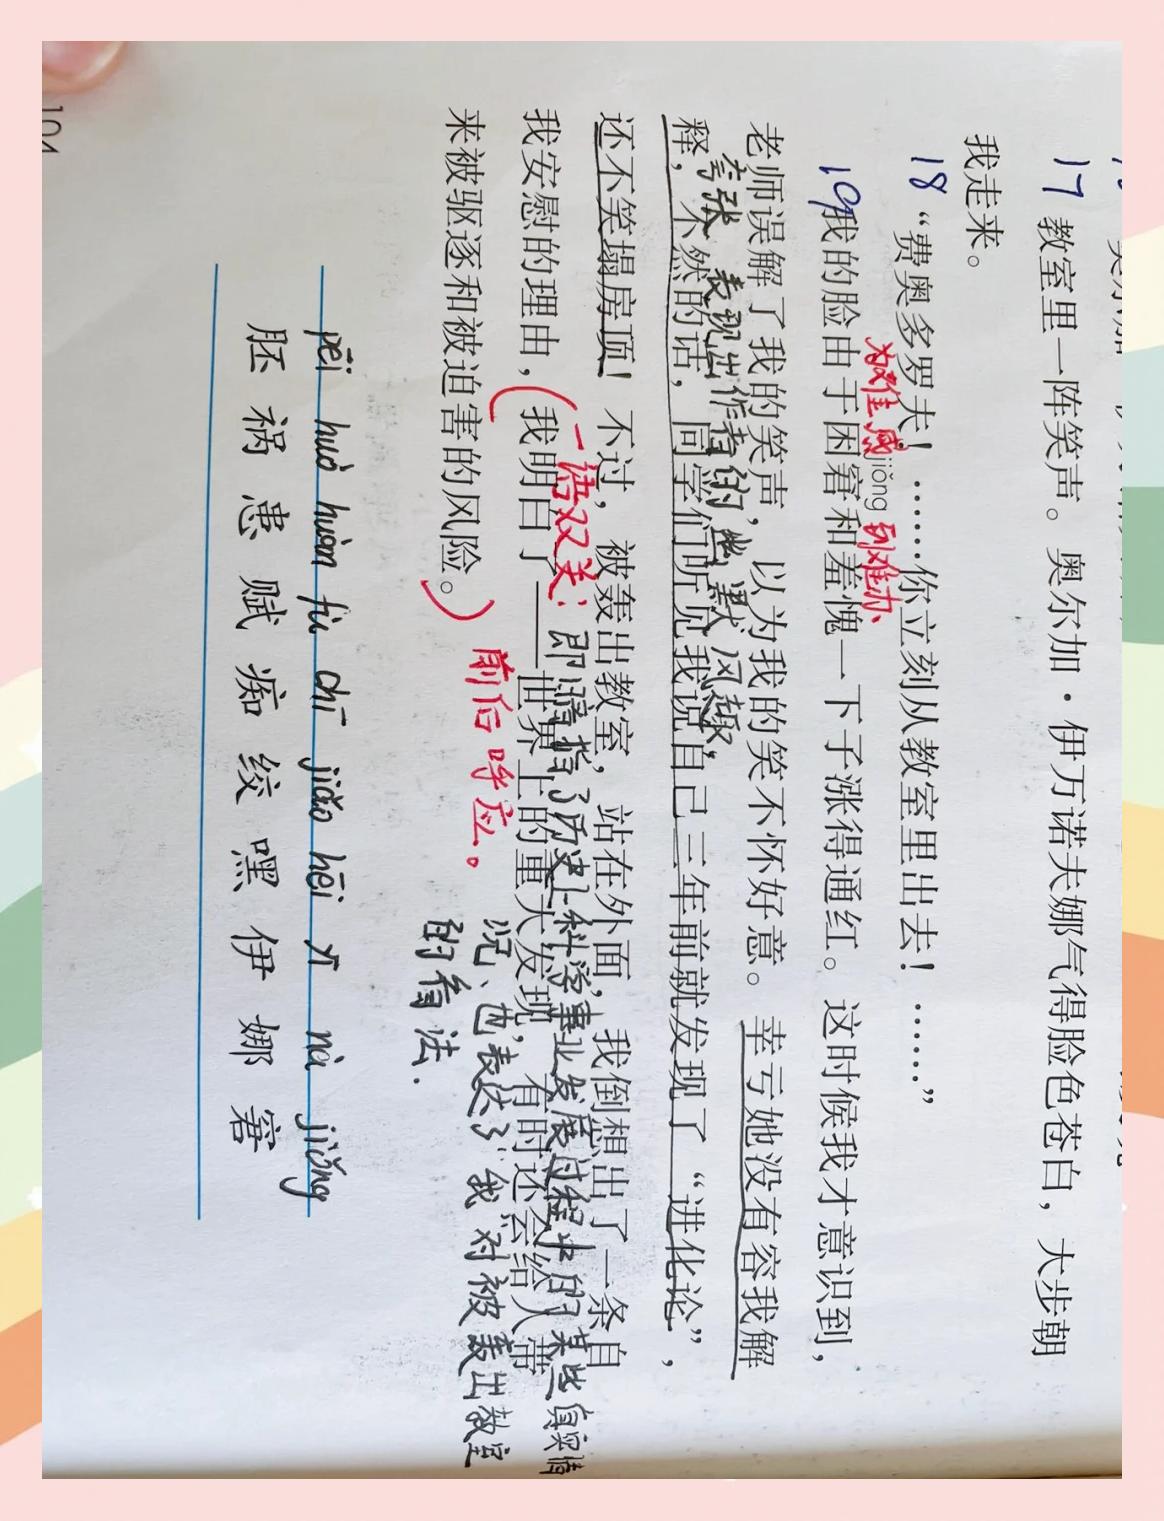 17 教室里一阵笑声。奥尔加·伊万诺夫娜气得脸色苍白，大步朝
我走来。
18 “费奥多罗夫！……你立刻从教室里出去！……”
为难，感 jiǒng 到难办
19 我的脸由于困窘和羞愧一下子涨得通红。这时候我才意识到，
老师误解了我的笑声，以为我的笑不怀好意。幸亏她没有容我解
夸张 表现出作者的幽默风趣，
释，不然的话，同学们听见我说自己三年前就发现了“进化论”，
还不笑塌房顶！不过，被轰出教室，站在外面，我倒想出了一条自
一语双关：即暗指了历史上科学事业发展过程中的某些真实情
我安慰的理由，（我明白了——世界上的重大发现，有时还会给人带
况、也表达了“我”对被轰出教室
来被驱逐和被迫害的风险。） 前后呼应。
的看法．
pēi huò huàn fù chī jiǎo hēi yī nà jiǒng
胚 祸 患 赋 痴 绞 嘿 伊 娜 窘
104